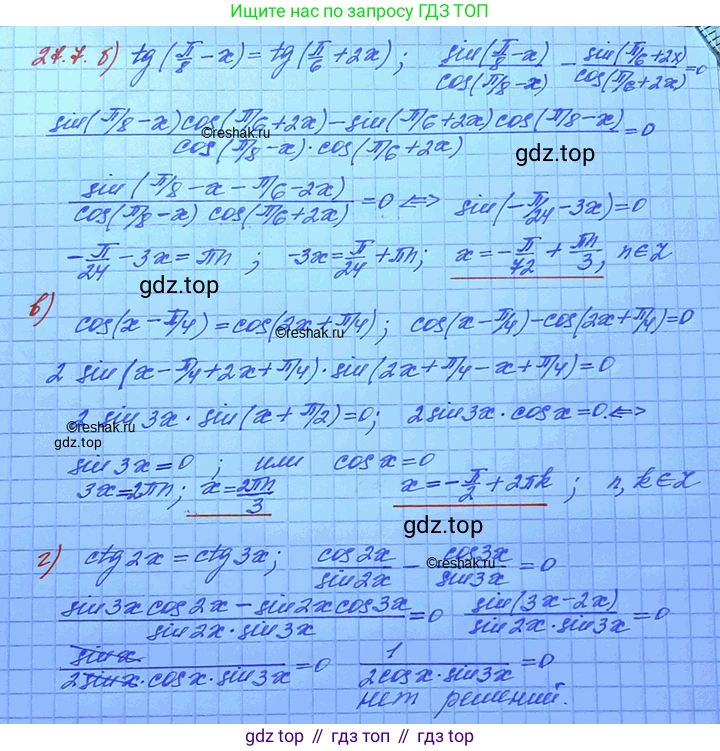 Ищите нас по запросу ГДЗ ТОП
27.7. б) tg(π/8 − x) = tg(π/6 + 2x); sin(π/8 − x)/cos(π/8 − x) − sin(π/6 + 2x)/cos(π/6 + 2x) = 0
(sin(π/8 − x)cos(π/6 + 2x) − sin(π/6 + 2x)cos(π/8 − x))/(cos(π/8 − x)·cos(π/6 + 2x)) = 0
©reshak.ru
gdz.top
sin(π/8 − x − π/6 − 2x)/(cos(π/8 − x) cos(π/6 + 2x)) = 0 ⇔ sin(−π/24 − 3x) = 0
−π/24 − 3x = πn; −3x = π/24 + πn; x = −π/72 + πn/3, n∈Z
gdz.top
в) cos(x − π/4) = cos(2x + π/4); cos(x − π/4) − cos(2x + π/4) = 0
©reshak.ru
2 sin(x − π/4 + 2x + π/4)·sin(2x + π/4 − x + π/4) = 0
2 sin 3x · sin(x + π/2) = 0; 2sin3x · cosx = 0 ⇔
©reshak.ru
gdz.top
sin 3x = 0; или cos x = 0
3x = 2πn; x = 2πn/3 x = −π/2 + 2πk; n, k∈Z
gdz.top
г) ctg 2x = ctg 3x; cos2x/sin2x − cos3x/sin3x = 0
©reshak.ru
(sin3x cos2x − sin2x cos3x)/(sin2x · sin3x) = 0 sin(3x − 2x)/(sin2x · sin3x) = 0
sinx/(2sinx · cosx · sin3x) = 0 1/(2cosx · sin3x) = 0
нет решений.
gdz.top // гдз.топ // gdz.top // гдз.топ